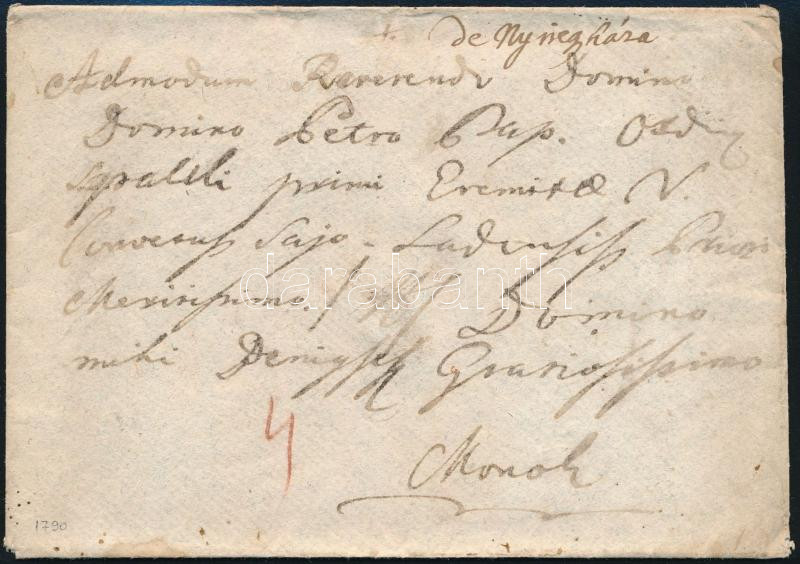 de Nyiregháza
Admodum Reverendo Domino
Domino Petro Pap. Ordin
S pauli primi Eremitæ V.
Conventus Sajo-Ladensis Priori
Meritissimo. Domino
mihi Benig Gratiosissimo
4
Monok
1790
darabanth